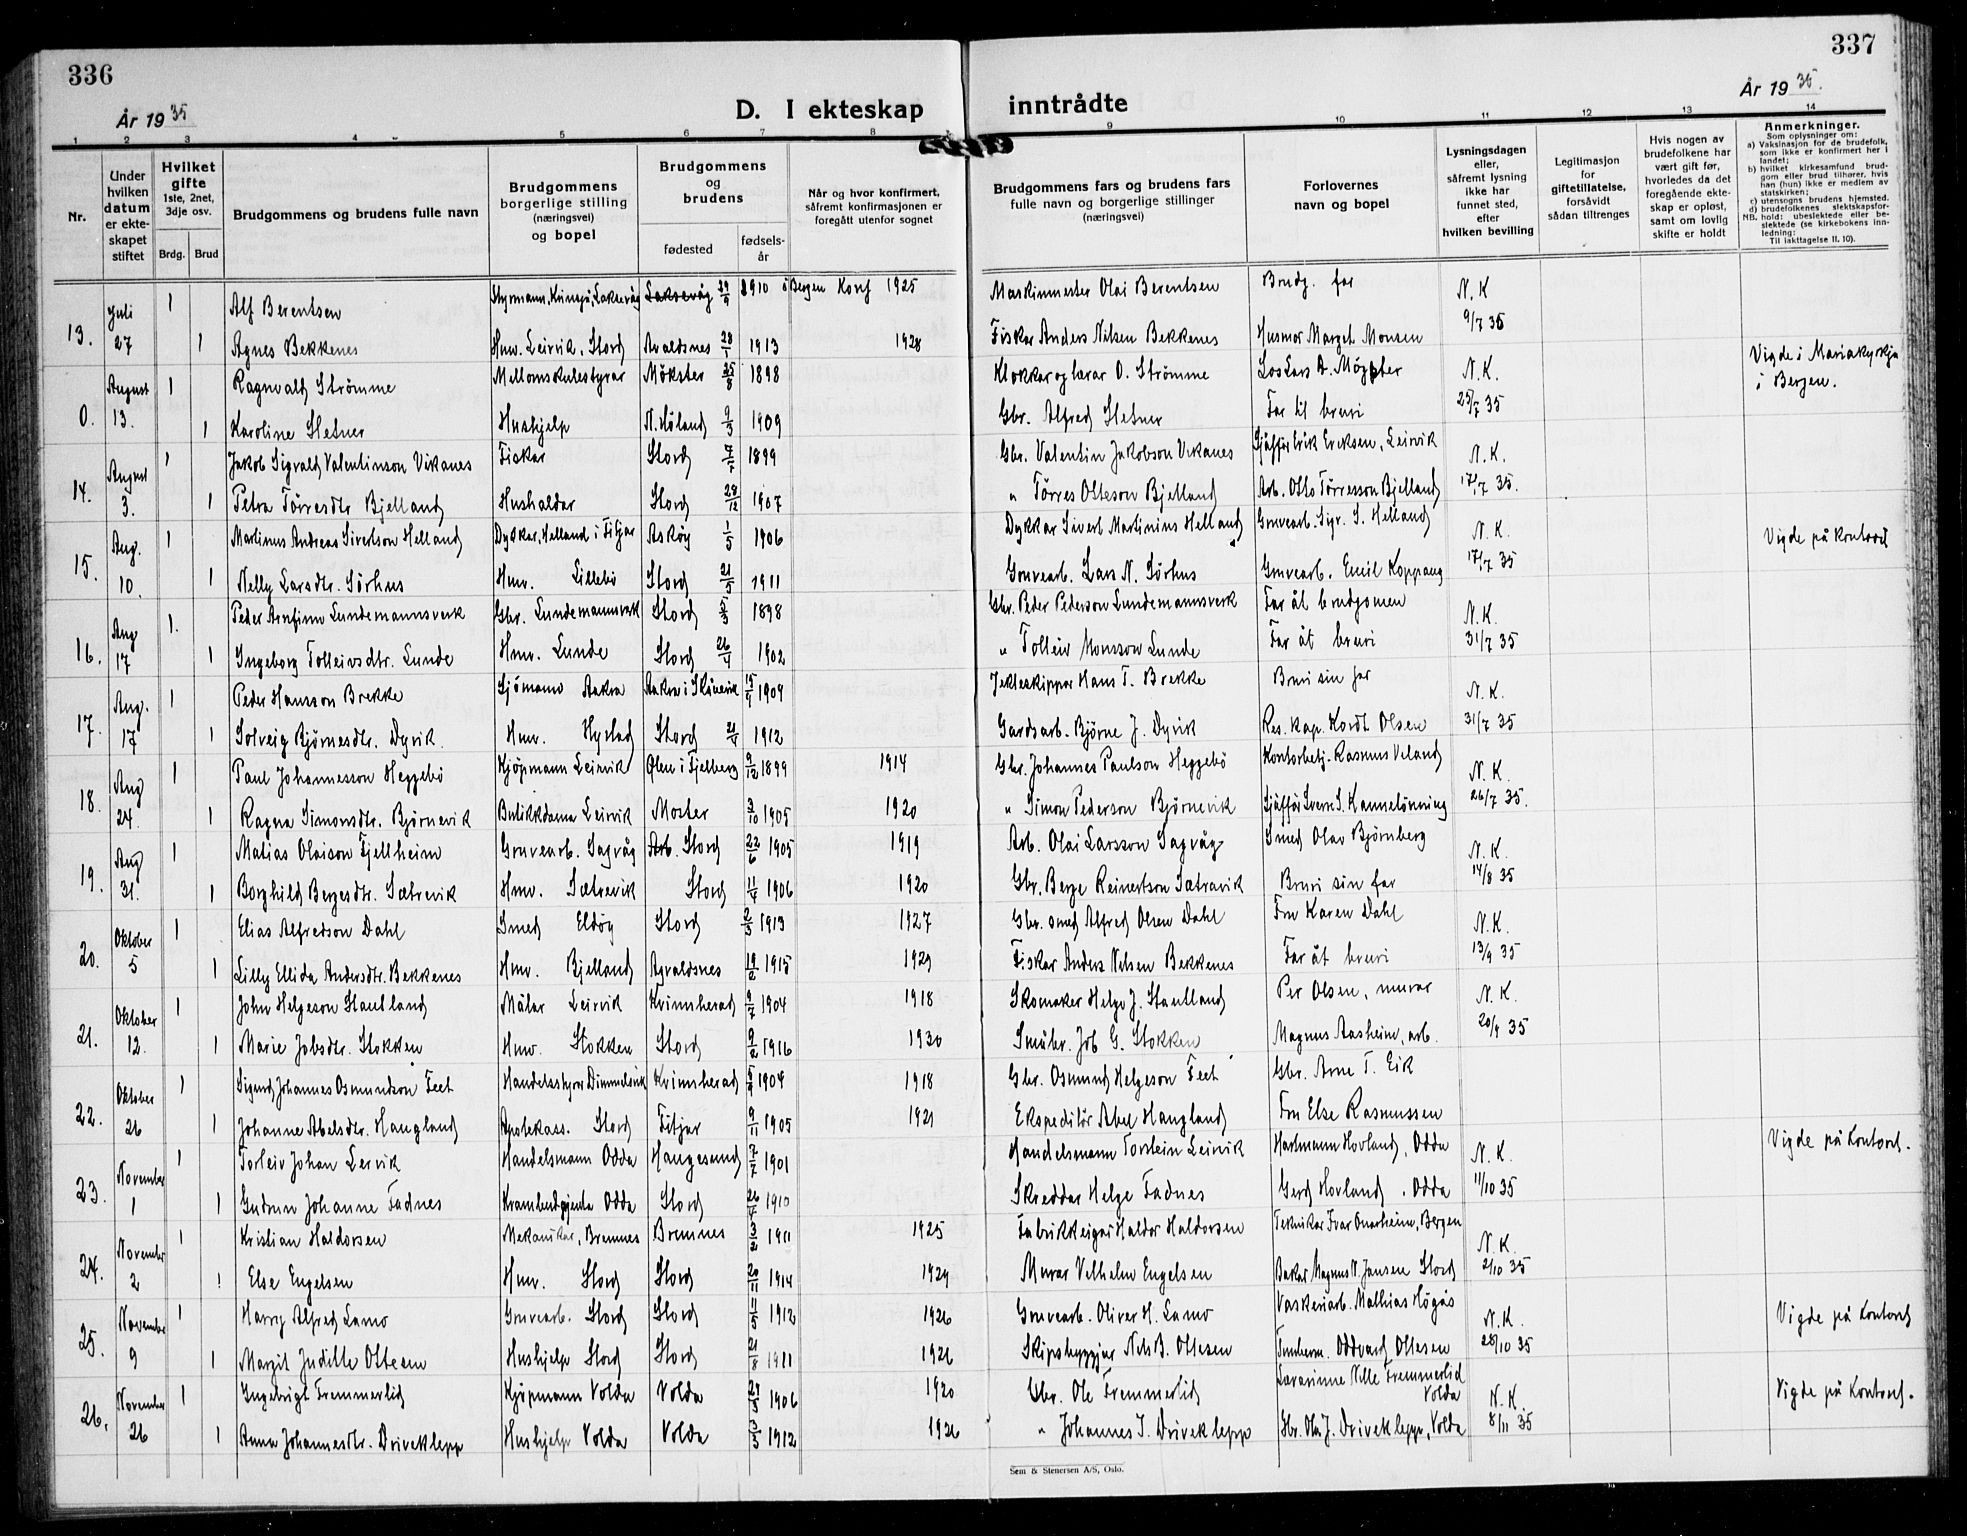 336
År 1935
D. I ekteskap
1 2 3 4 5 6 7 8
Nr.
Under hvilken datum er ekteskapet stiftet
Hvilket gifte 1ste, 2net, 3dje osv.
Brdg. Brud
Brudgommens og brudens fulle navn
Brudgommens borgerlige stilling (næringsvei) og bopel
Brudgommens og brudens
fødested fødselsår
Når og hvor konfirmert, såfremt konfirmasjonen er foregått utenfor sognet
13. Juli 27 1 Alf Berentsen Styrmann, Kringsjå, Laksevåg Laksevåg 29/9 1910 Bergen Konf 1925
1 Agnes Bekkenes Hmv. Leirvik, Stord Avaldsnes 28/1 1913 1928
0. August 13. 1 Ragnvald Strømme Mellomskulestyrar Møkster 25/8 1898
1 Karoline Hetner Hushjelp N. Høland 9/3 1909
14. August 3. 1 Jakob Sigvald Valentinson Vikanes Fiskar Stord 7/7 1899
1 Petra Tørresdtr Bjelland Hushaldar Stord 28/12 1907
15. Aug. 10. 1 Martinus Andreas Sivertson Helland Dykkar, Helland i Fitjar Askøy 1/5 1906
1 Nelly Larsdtr. Sørhus Hmv. Lillebø Stord 21/5 1911
16. Aug 17 1. Peder Arnfinn Lundemannsverk Gbr. Lundemannsverk Stord 5/3 1898
1 Ingeborg Tolleivsdtr. Lunde Hmv. Lunde Stord 26/4 1902
17. Aug. 17 1 Peder Hansson Brekke Sjömann Aakra Aakra i Skånevik 1909
1 Solveig Bjørnesdtr. Dyvik. Hmv. Hystad Stord 21/4 1912
18. Aug 24. 1 Paul Johannesson Heggebö Kjöpmann Leirvik Ølen i Fjelberg 9/12 1899 1914
1 Ragna Simonsdtr. Bjørnevik Butikkdama Leirvik Moster 3/10 1905 1920
19. Aug 31. 1 Matias Olaison Fjellheim Gruvearb. Sagvåg Stord 22/6 1905 1919
1 Borghild Bergesdtr. Sætrevik Hmv. Sætrevik Stord 11/4 1906 1920
20. Oktober 5 1 Elias Alfredson Dahl Smed Eldöy Stord 2/3 1913 1927
1 Lilly Ellida Andersdtr. Bekkenes Hmv. Bjelland Avaldsnes 19/2 1915 1929
21. Oktober 12. 1 John Helgeson Stautland Målar Leirvik Kvinnherad 9/7 1904 1918
1 Marie Jobsdtr. Stokken Hmv. Stokken Stord 9/2 1916 1930
22. Oktober 26 1 Sigurd Johannes Osmundson Feet Handelsstyrar Dimmelsvik Kvinnherad 5/9 1904 1918
1 Johanne Abelsdtr. Haugland Apotekass. Stord Fitjar 9/11 1905 1921
23. November 1 1 Torleiv Johan Leirvik Handelsmann Odda Haugesund 7/7 1901
1 Gudrun Johanne Fadnes Krambudgjenta Odda Stord 26/4 1910
24. November 2 1 Kristian Haldorsen Mekanikar, Bremnes Bremnes 3/2 1911 1925
1 Else Engelsen Hmv. Stord Stord 20/11 1914 1929
25. November 9 1 Harry Alfred Lamo Gruvearb. Stord Stord 11/5 1912 1926
1 Margit Juditte Ottesen Hushjelp Stord Stord 21/8 1911 1926
26. November 26 1 Ingebrigt Fremmerlid Kjöpmann Volda Volda 1906 1920
1 Anna Johannesdtr. Driveklepp Hushjelp Volda Volda 3/5 1912 1926
337
År 1935.
inntrådte
9 10 11 12 13 14
Brudgommens fars og brudens fars fulle navn og borgerlige stillinger (næringsvei)
Forlovernes navn og bopel
Lysningsdagen eller, såfremt lysning ikke har funnet sted, efter hvilken bevilling
Legitimasjon for giftetillatelse, forsåvidt sådan tiltrenges
Hvis nogen av brudefolkene har vært gift før, hvorledes da det foregående ekteskap er opløst, samt om lovlig skifte er holdt
Anmerkninger.
Som oplysninger om:
a) Vaksinasjon for de brudefolk, som ikke er konfirmert her i landet;
b) hvilket kirkesamfund brudgom eller brud tilhører, hvis han (hun) ikke er medlem av statskirken;
c) utensogns brudens hjemsted.
d) brudefolkenes slektskapsforhold: ubeslektede eller beslektede (se kirkebokens innledning:
NB.
Til iakttagelse II. 10).
Maskinmester Olai Berentsen Brudg. far N. K
Fiskar Anders Nilsen Bekkenes Husmor Marget Monsen 9/7 35
Klokkar og lærar O. Strømme Los Lars A. Møgster N. K. Vigde i Mariakyrkja i Bergen.
Gbr. Alfred Hetner Far til bruri 25/7 35
Gbr. Valentin Jakobson Vikanes Sjåffør Erik Eriksen, Leirvik N. K.
" Tørres Otteson Bjelland Arb. Otto Tørresson Bjelland 17/7 35.
Dykkar Sivert Martinius Helland Gruvearb. Sigv. S. Helland N. K. Vigde på kontoret
Gruvearb. Lars N. Sørhus Gruvearb. Emil Koppang 17/7 35
Gbr. Peder Pederson Lundemannsverk Far åt brudgomen N. K.
" Tolleiv Monsson Lunde Far åt bruri 31/7 35
Jekteskippar Hans T. Brekke Bruri sin far N. K.
Gardsarb. Bjørne J. Dyvik Res. kap. Kordt Olsen 31/7 35
Gbr. Johannes Paulson Heggebö Kontorbetj. Rasmus Veland N. K.
" Simon Pederson Bjørnevik Sjåffør Sverre S. Kannelönning 26/7 35.
Arb. Olai Larsson Sagvåg Smed Olav Bjørnberg N. K.
Gbr. Berge Reinertson Sætravik Bruri sin far 14/8 35
Gbr. smed Alfred Olsen Dahl Fru Karen Dahl N. K.
Fiskar Anders Nilsen Bekkenes Far åt bruri 13/9 35
Skomaker Helge J. Stautland Per Olsen, murar N. K.
Småbr. Job G. Stokken Magnus Aasheim, arb. 20/9 35
Gbr. Osmund Helgeson Feet Gbr. Arne T. Eik
Ekspeditör Abel Haugland Fru Else Rasmussen
Handelsmann Torstein Leirvik Hartmann Hovland, Odda N. K. Vigde på kontoret.
Skreddar Helge Fadnes Gerd Hovland, Odda 11/10 35
Fabrikkeigar Haldor Haldorsen Teknikar Ivar Onarheim, Bergen N. K.
Murar Vilhelm Engelsen Bakar Magnus N. Jansen Stord 2/10 35
Gruvearb. Oliver H. Lamo Vaskeriarb. Mathias Högås N. K. Vigde på kontoret
Skipsbyggjar Nils B. Ottesen Tømberm. Oddvard Ottesen 28/10 35
Gbr. Ole Fremmerlid Lærarinne Nille Fremmerlid Volda N. K. Vigde på kontoret.
" Johannes I. Driveklepp Gbr. Ola J. Driveklepp, Volda 8/11 35
Sem & Stenersen A/S, Oslo.